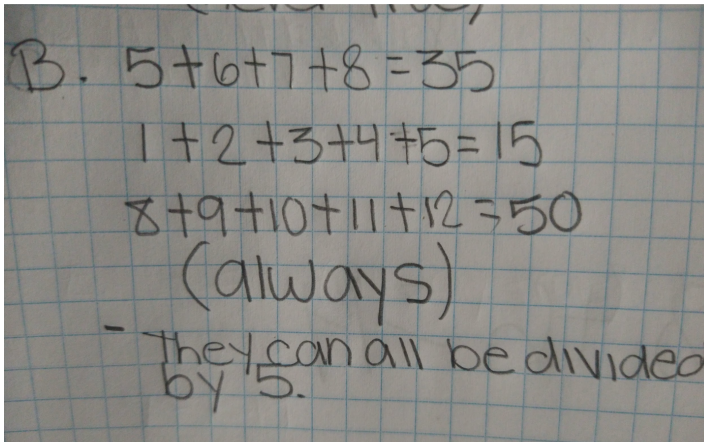 B. 5+6+7+8=35
1+2+3+4+5=15
8+9+10+11+12=50
(always)
- They can all be divided
by 5.